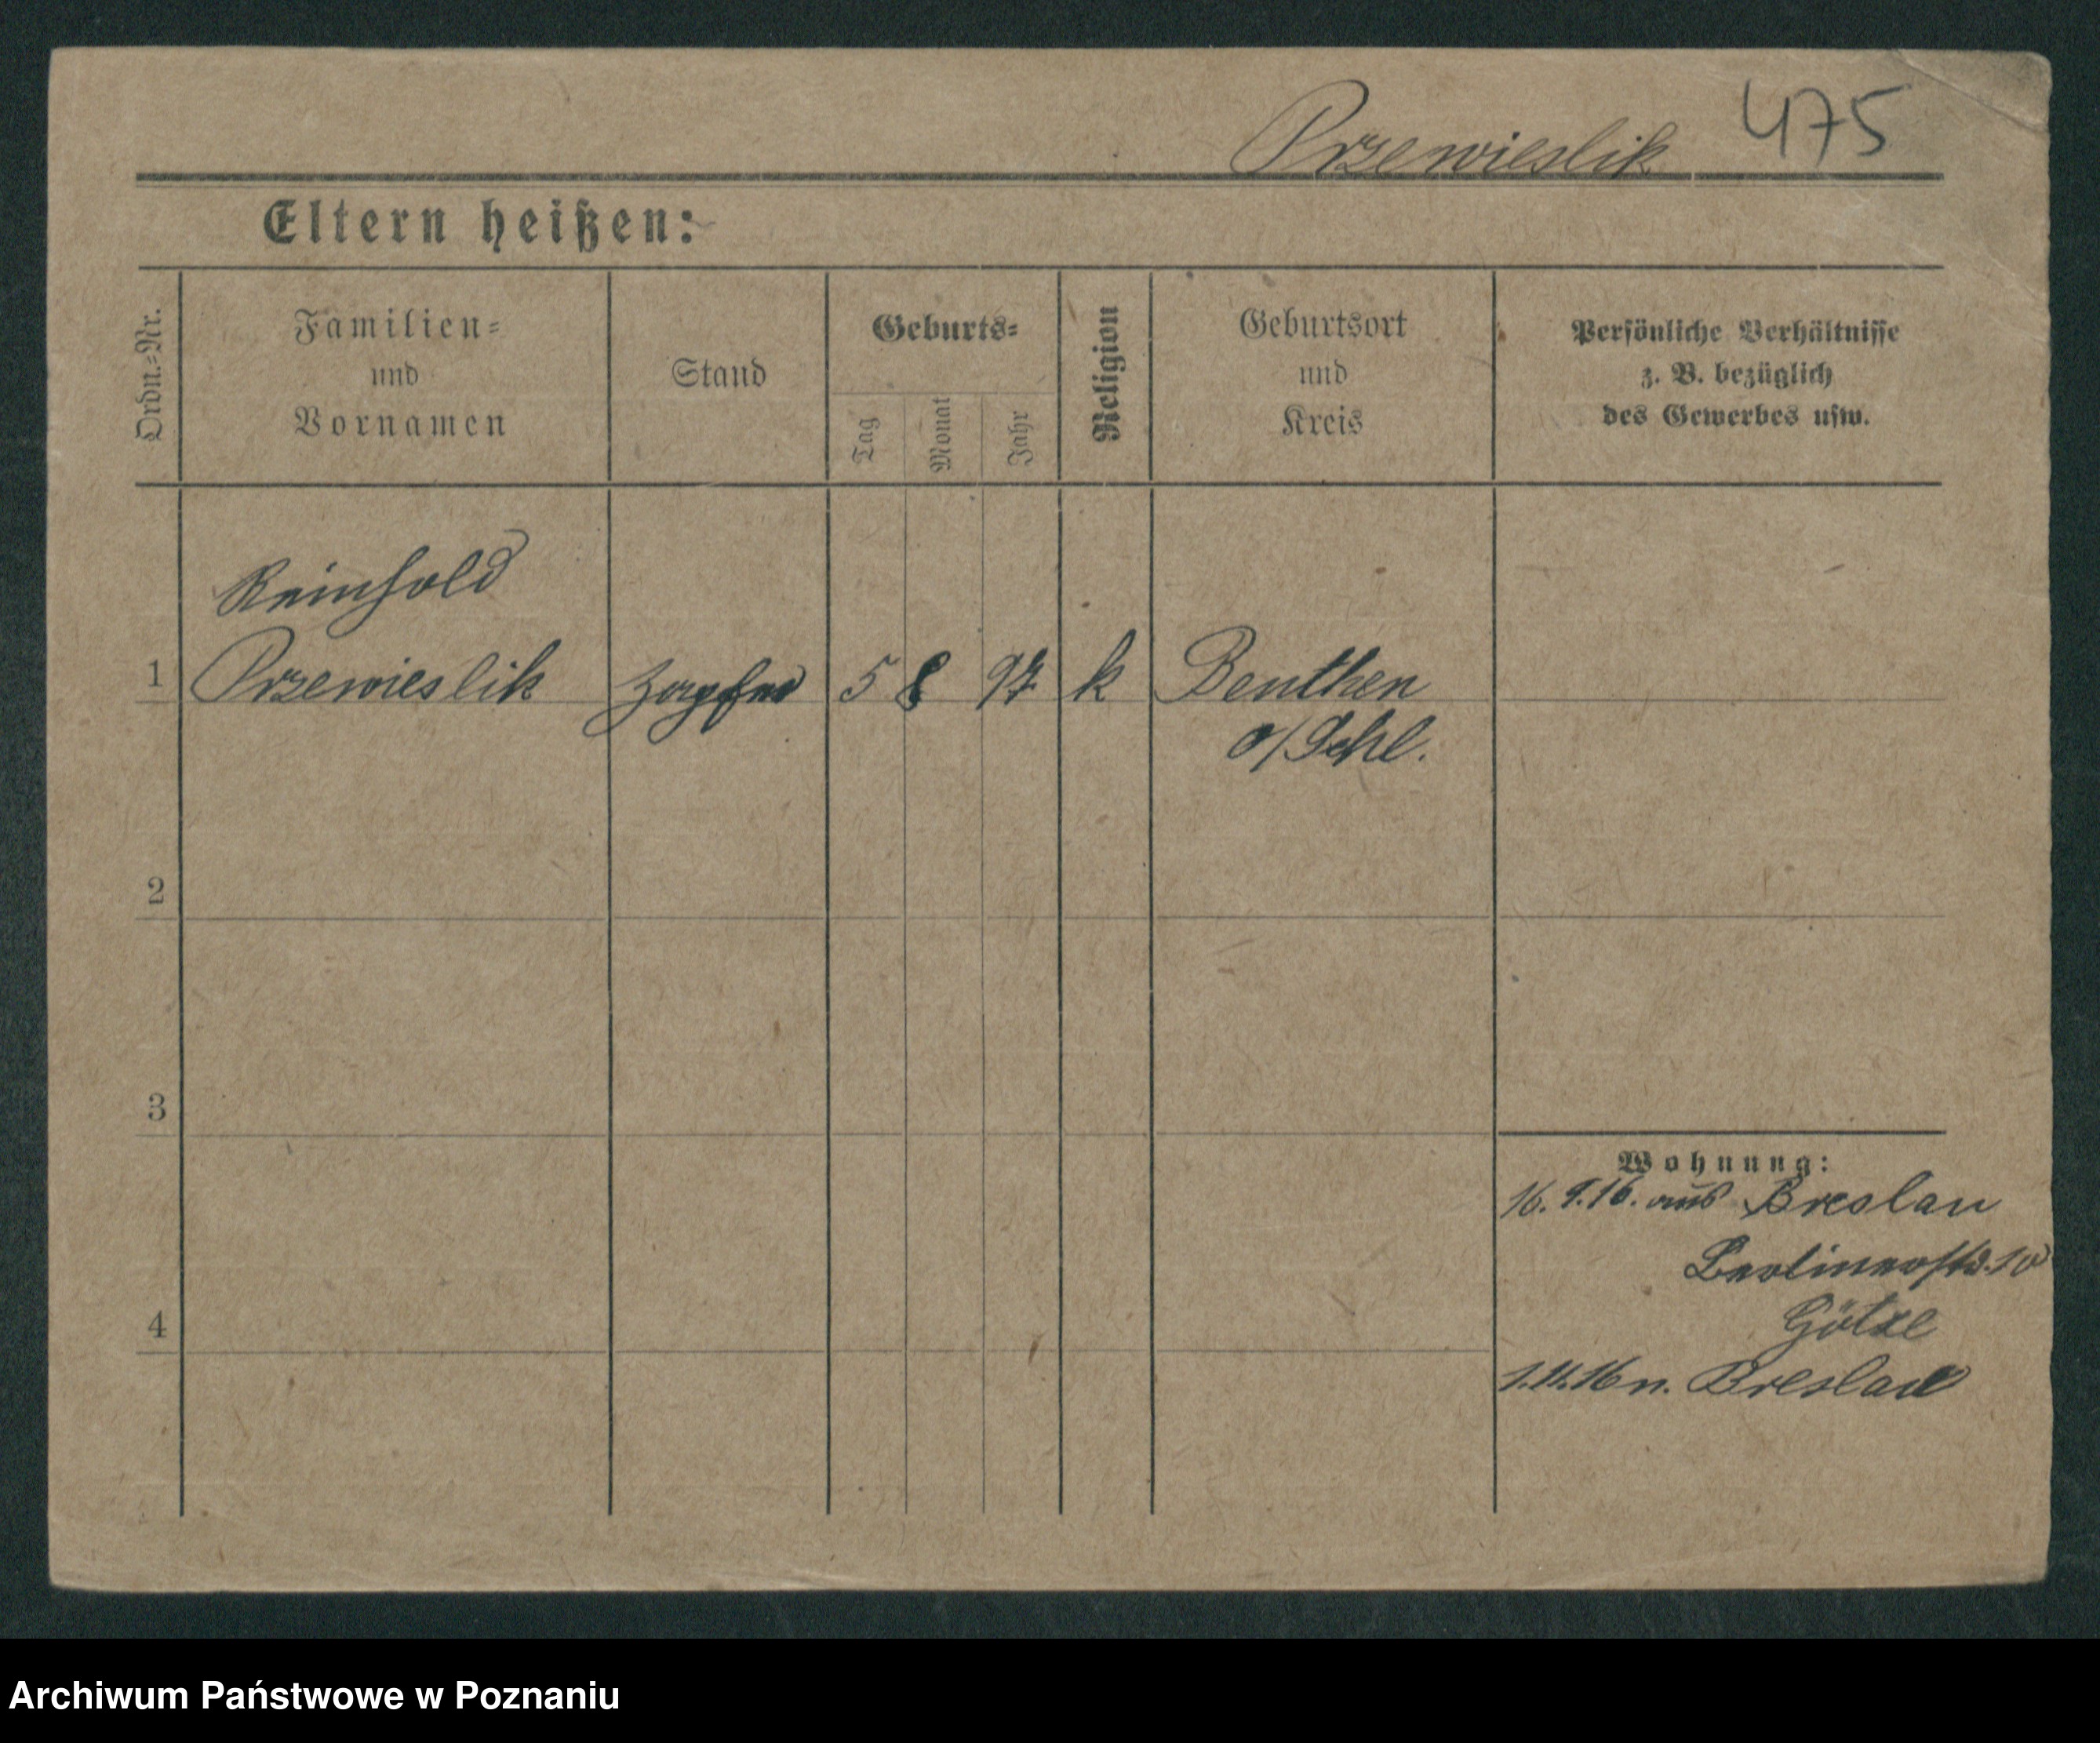 Przewieslik 475
Eltern heißen:
Ordn.=Nr.
Familien=
und
Vornamen
Stand
Geburts=
Tag
Monat
Jahr
Religion
Geburtsort
und
Kreis
Persönliche Verhältnisse
z. B. bezüglich
des Gewerbes usw.
Reinhold
1 Przewieslik 5 8 97 k Beuthen
O/Schl.
2
3
4
Wohnung:
16. 9. 16. aus Breslau
Berlinerstr. 10
Götze
1.11.16 n. Breslau
Archiwum Państwowe w Poznaniu